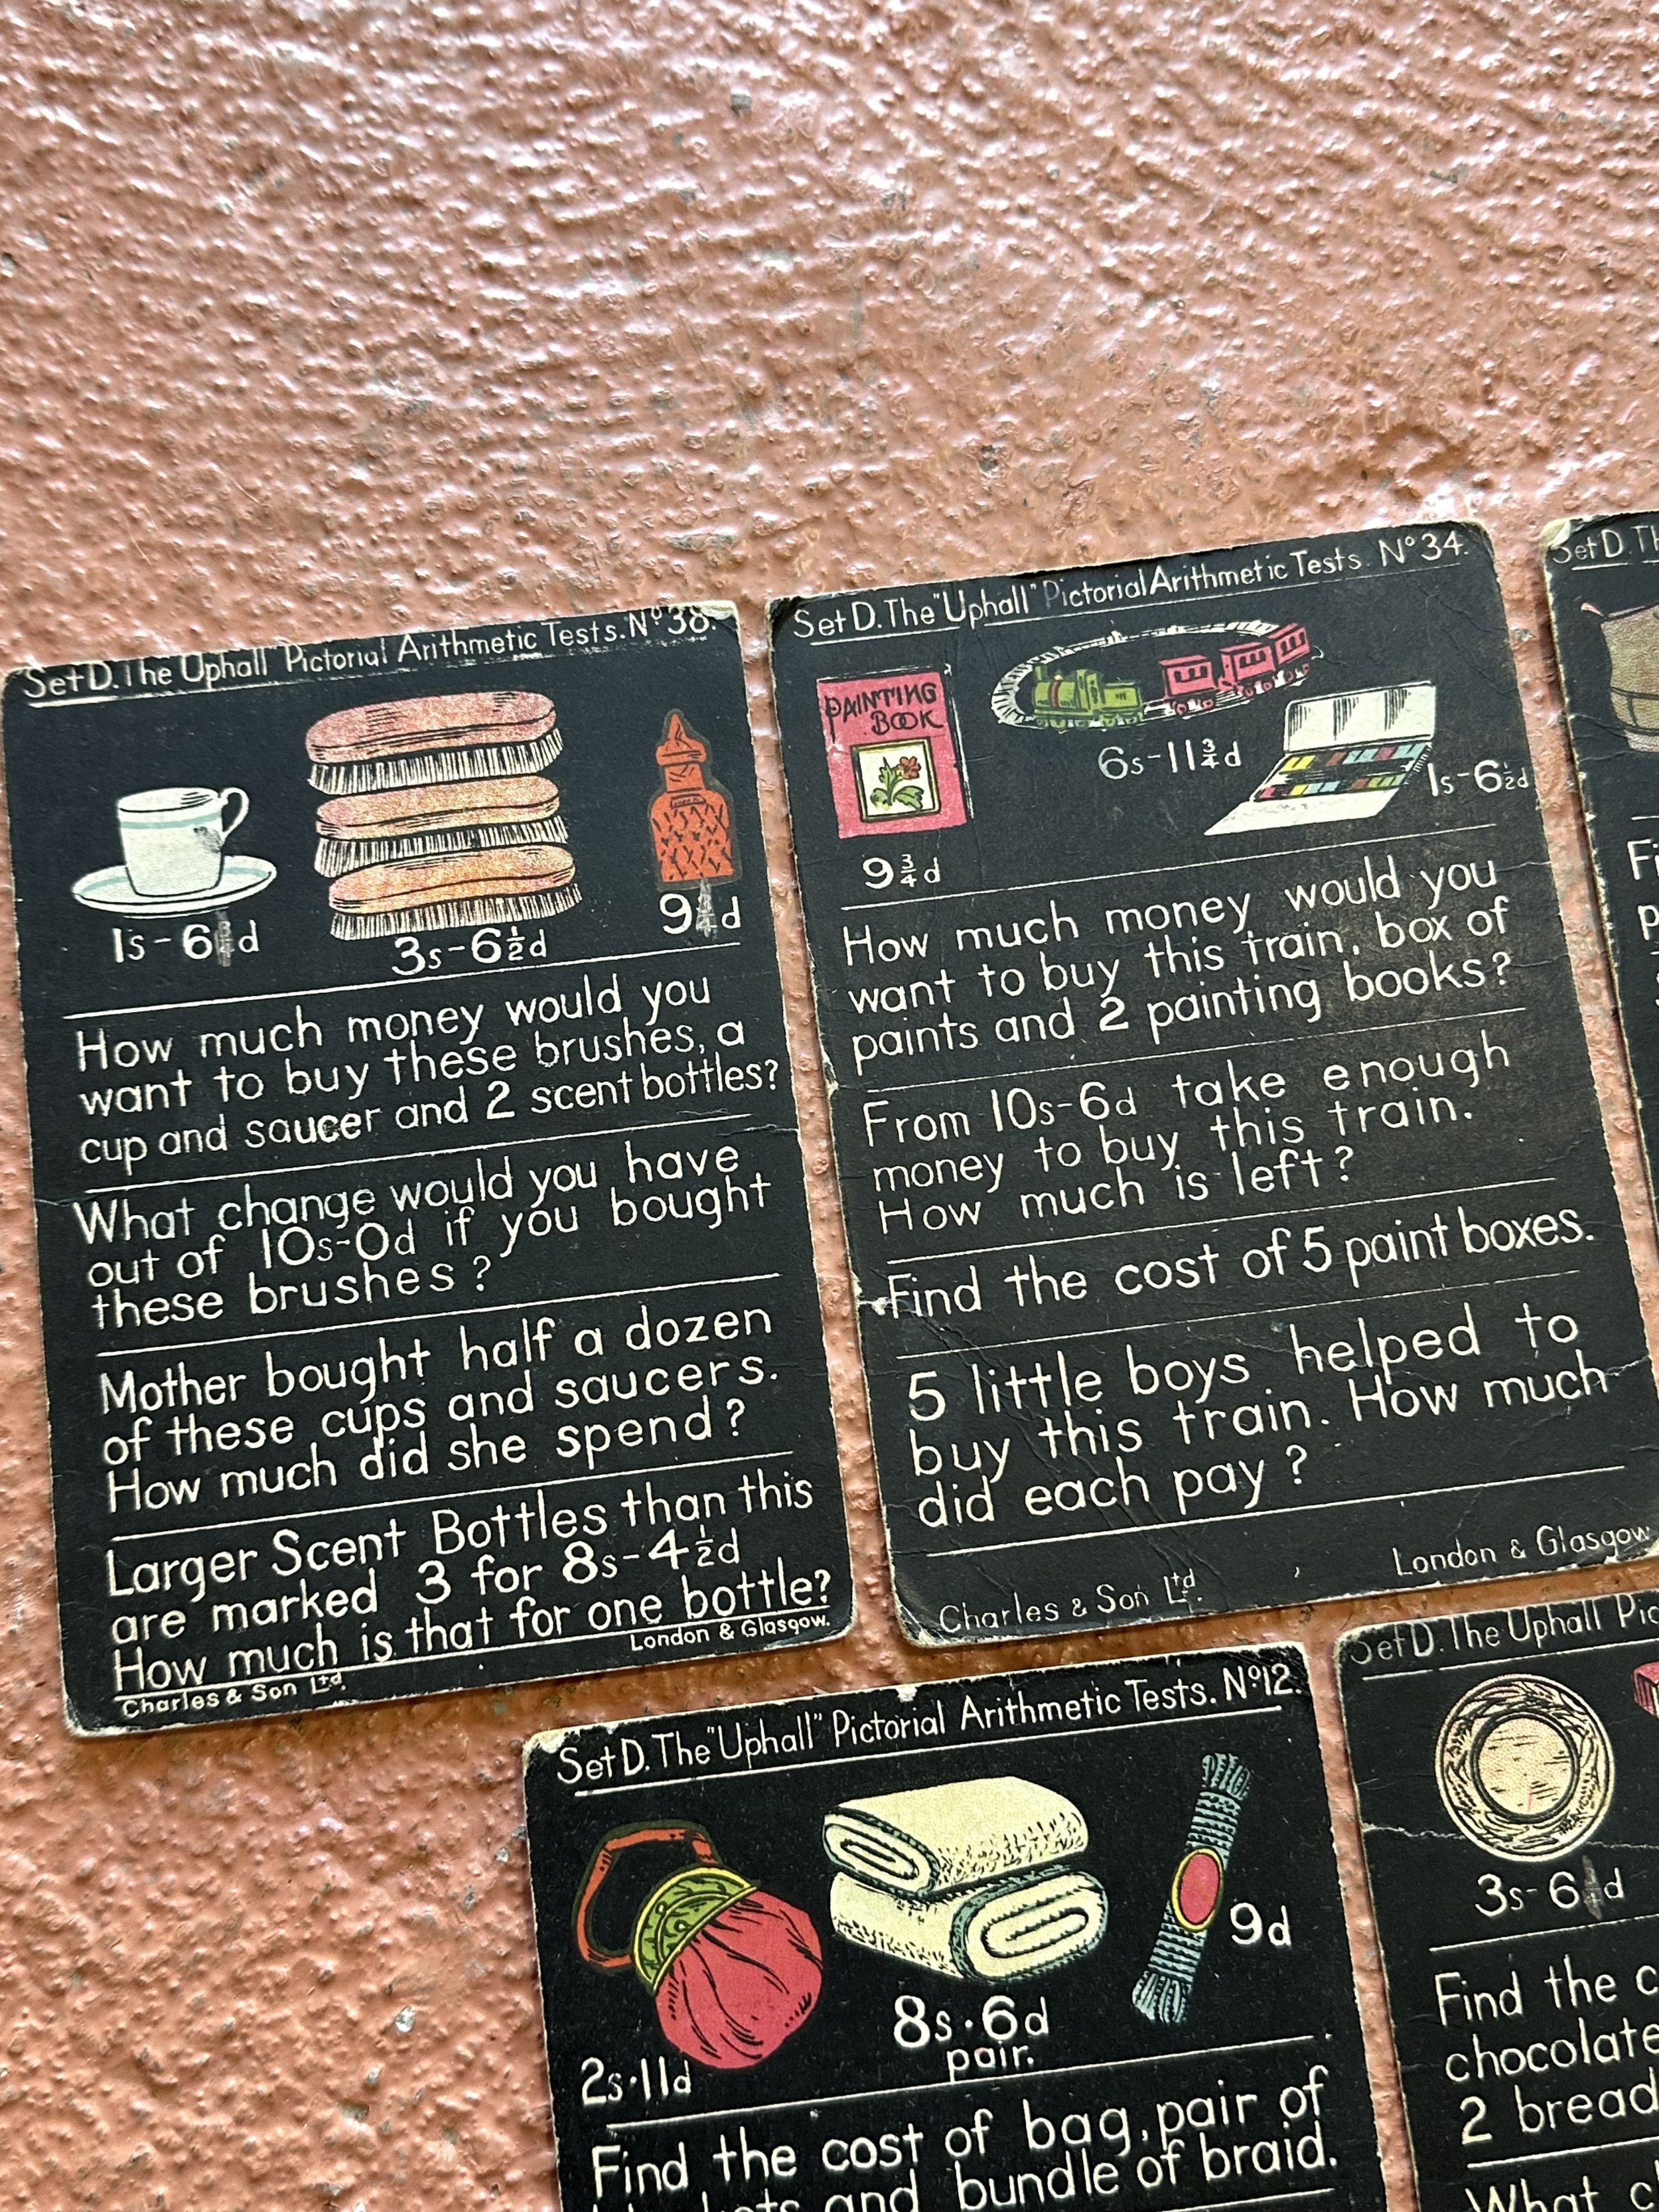 Set D. The "Uphall" Pictorial Arithmetic Tests. Nº 38.
1s-6 d
3s-6½d
9 d
How much money would you
want to buy these brushes, a
cup and saucer and 2 scent bottles?
What change would you have
out of 10s-0d if you bought
these brushes?
Mother bought half a dozen
of these cups and saucers.
How much did she spend?
Larger Scent Bottles than this
are marked 3 for 8s-4½d
How much is that for one bottle?
Charles & Son Ltd. London & Glasgow.
Set D. The "Uphall" Pictorial Arithmetic Tests. Nº 34.
PAINTING
BOOK
6s-11¾d
1s-6½d
9¾d
How much money would you
want to buy this train, box of
paints and 2 painting books?
From 10s-6d take enough
money to buy this train.
How much is left?
Find the cost of 5 paint boxes.
5 little boys helped to
buy this train. How much
did each pay?
Charles & Son Ltd. London & Glasgow
Set D.
Set D. The "Uphall" Pictorial Arithmetic Tests. Nº 12.
2s·11d
8s·6d
pair.
9d
Find the cost of bag, pair of
and bundle of braid.
Set D. The Uphall Pic
3s-6 d
Find the c
chocolate
2 bread
What c